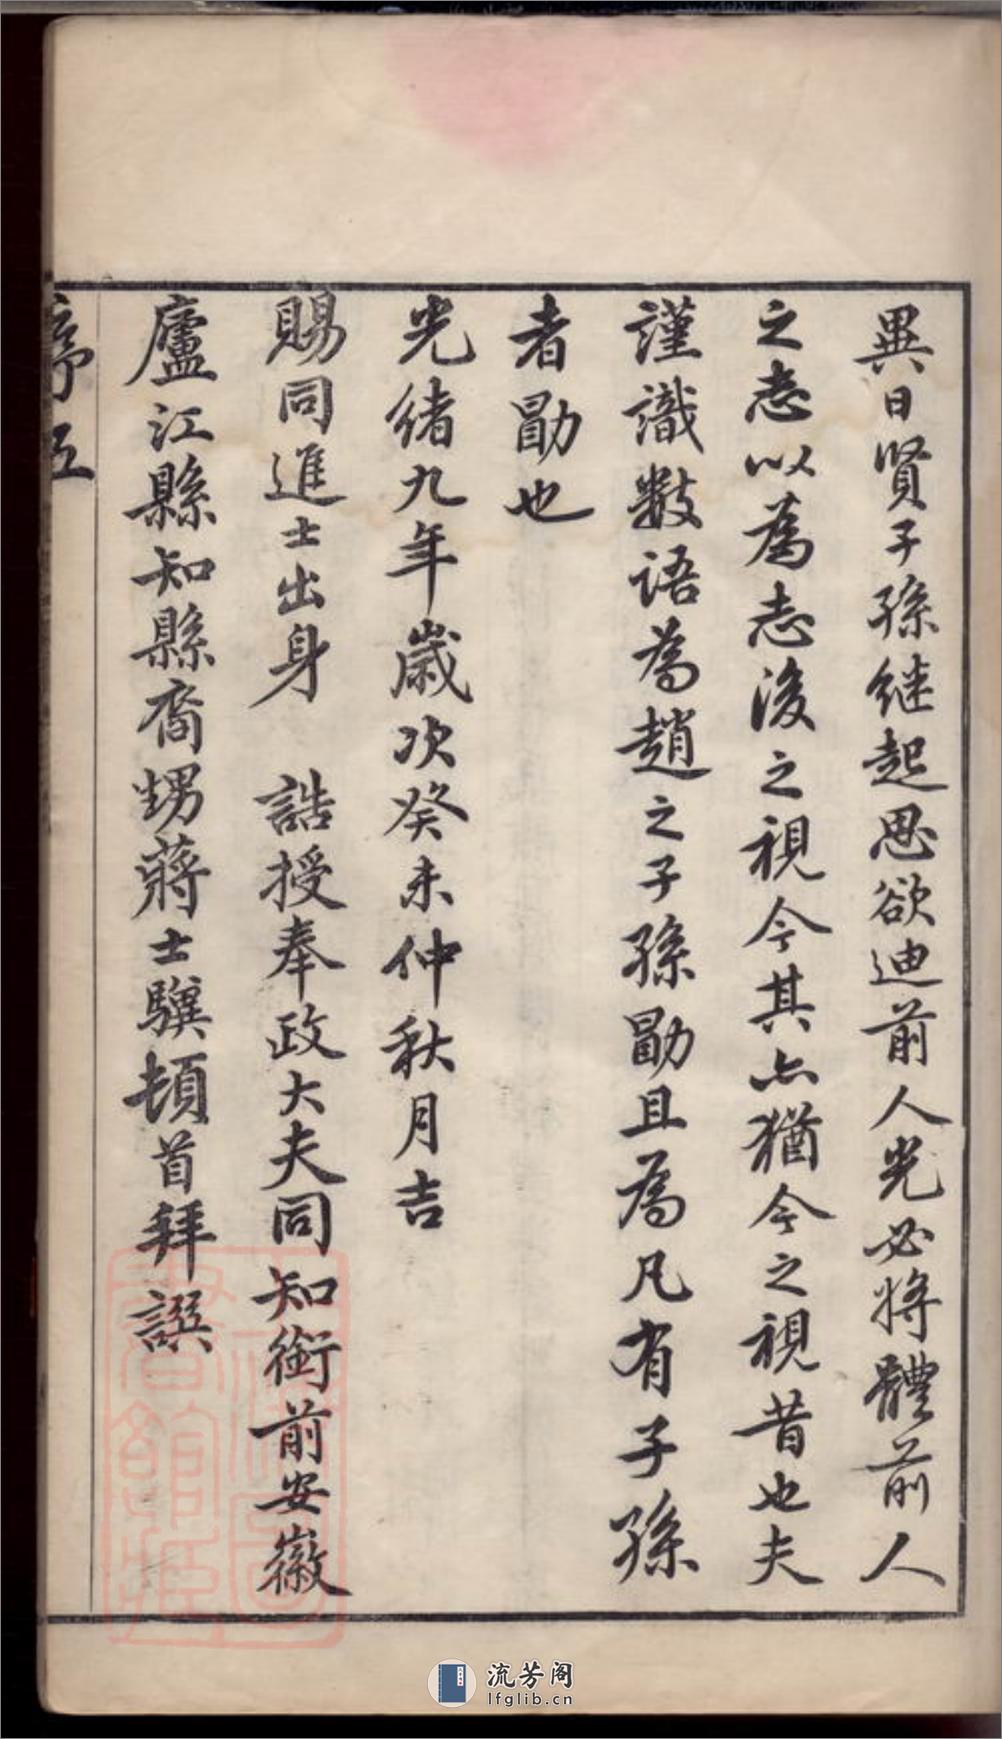 異日賢子孫繼起思欲迪前人光必將體前人
之志以為志後之視今其亦猶今之視昔也夫
謹識數語為趙之子孫勖且為凡有子孫
者勖也
光緒九年歲次癸未仲秋月吉
賜同進士出身　誥授奉政大夫同知銜前安徽
廬江縣知縣裔甥蔣士驥頓首拜譔
序五
流芳阁
lfglib.cn